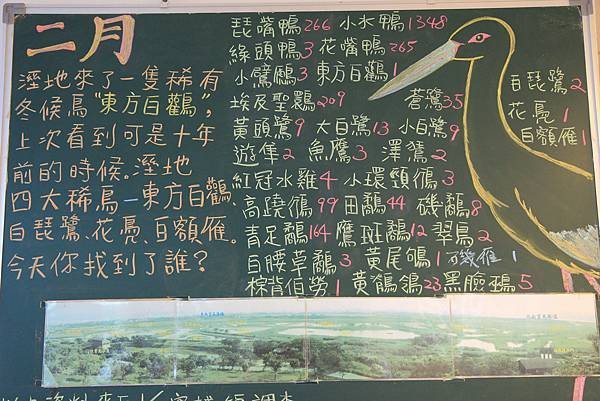 二月
溼地來了一隻稀有
冬候鳥"東方白鸛",
上次看到可是十年
前的時候。溼地
四大稀鳥—東方白鸛、
白琵鷺、花鳧、白額雁。
今天你找到了誰？
琵嘴鴨266 小水鴨1348
綠頭鴨3 花嘴鴨265
小鷿鷈3 東方白鸛1
埃及聖䴉209 蒼鷺35
黃頭鷺9 大白鷺13 小白鷺9
遊隼2 魚鷹3 澤鵟2
紅冠水雞4 小環頸鴴3
高蹺鴴99 田鷸44 磯鷸8
青足鷸164 鷹斑鷸12 翠鳥2
白腰草鷸3 黃尾鴝1
棕背伯勞1 黃鶺鴒23 黑臉鵐5
白琵鷺2
花鳧1
白額雁1